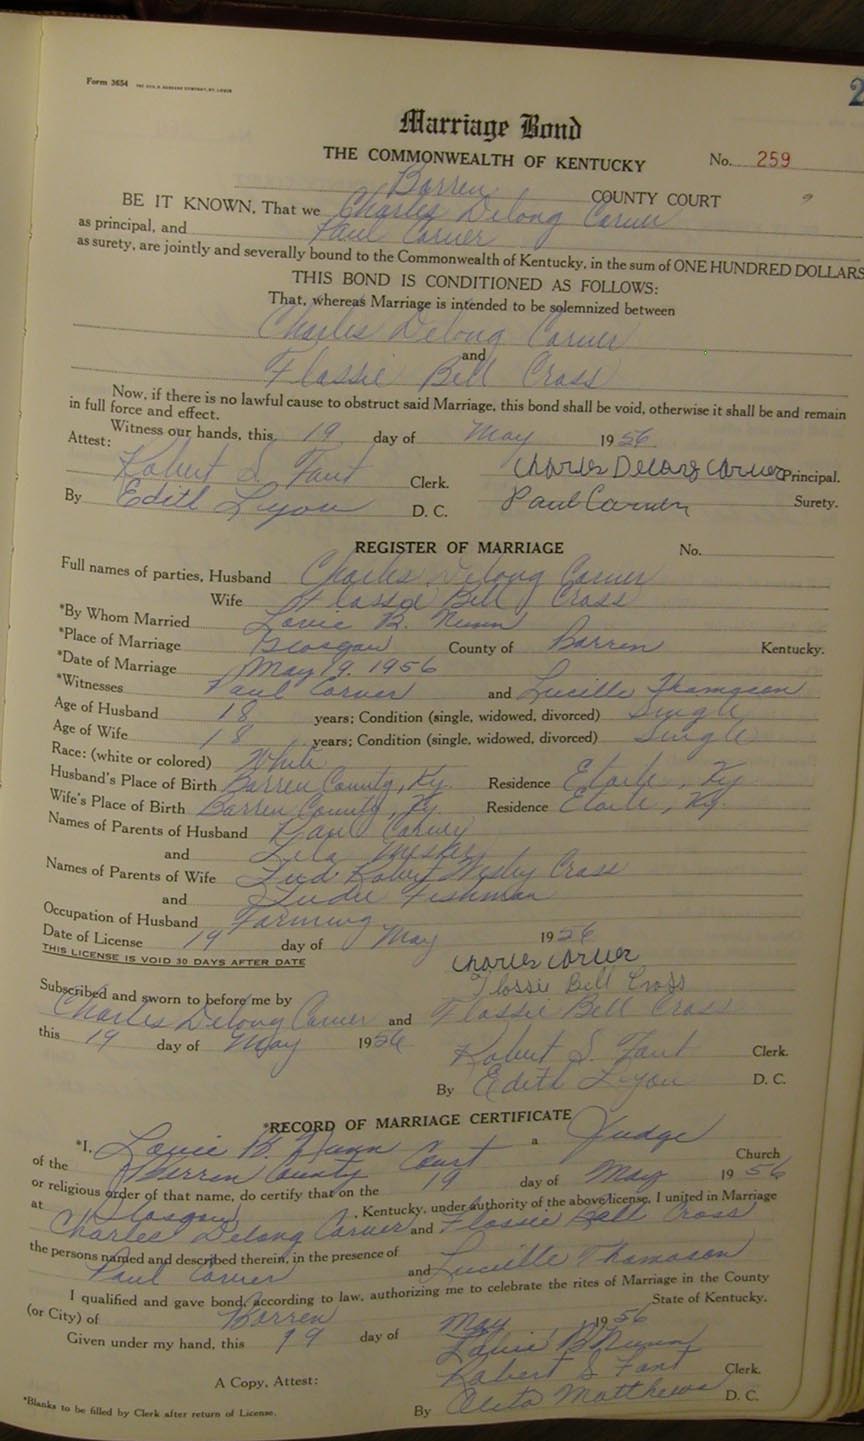 Form 3654
2
Marriage Bond
THE COMMONWEALTH OF KENTUCKY No. 259
Barren COUNTY COURT
BE IT KNOWN, That we Charles Delong Carver
as principal, and Paul Carver
as surety, are jointly and severally bound to the Commonwealth of Kentucky, in the sum of ONE HUNDRED DOLLARS
THIS BOND IS CONDITIONED AS FOLLOWS:
That, whereas Marriage is intended to be solemnized between
Charles Delong Carver
and
Flossie Bell Cross
Now, if there is no lawful cause to obstruct said Marriage, this bond shall be void, otherwise it shall be and remain
in full force and effect.
Witness our hands, this 19 day of May 1956
Attest:
Robert S. Fant Clerk. Charles Delong Carver Principal.
By Edith Lyon D. C. Paul Carver Surety.
REGISTER OF MARRIAGE No.
Full names of parties, Husband Charles Delong Carver
Wife Flossie Bell Cross
*By Whom Married Louie B. Nunn
*Place of Marriage Glasgow County of Barren Kentucky.
*Date of Marriage May 19, 1956
*Witnesses Paul Carver and Lucille Thomason
Age of Husband 18 years; Condition (single, widowed, divorced) Single
Age of Wife 18 years; Condition (single, widowed, divorced) Single
Race: (white or colored) White
Husband's Place of Birth Barren County, Ky. Residence Etoile, Ky.
Wife's Place of Birth Barren County, Ky. Residence Etoile, Ky.
Names of Parents of Husband Paul Carver
and Lela
Names of Parents of Wife Robert Wesley Cross
and Fishman
Occupation of Husband Farming
Date of License 19 day of May 1956
THIS LICENSE IS VOID 30 DAYS AFTER DATE
Charles Carver
Flossie Bell Cross
Subscribed and sworn to before me by
Charles Delong Carver and Flossie Bell Cross
this 19 day of May 1956
Robert S. Fant Clerk.
By Edith Lyon D. C.
*RECORD OF MARRIAGE CERTIFICATE
*I, Louie B. Nunn a Judge
of the Barren County Court Church
or religious order of that name, do certify that on the 19 day of May 1956
at Glasgow, Kentucky, under authority of the above license, I united in Marriage
Charles Delong Carver and Flossie Bell Cross
the persons named and described therein, in the presence of
Paul Carver and Lucille Thomason
I qualified and gave bond, according to law, authorizing me to celebrate the rites of Marriage in the County
(or City) of Barren State of Kentucky.
Given under my hand, this 19 day of May 1956
Louie B Nunn
A Copy, Attest: Robert S Fant Clerk.
By Oleta Matthews D. C.
*Blanks to be filled by Clerk after return of License.